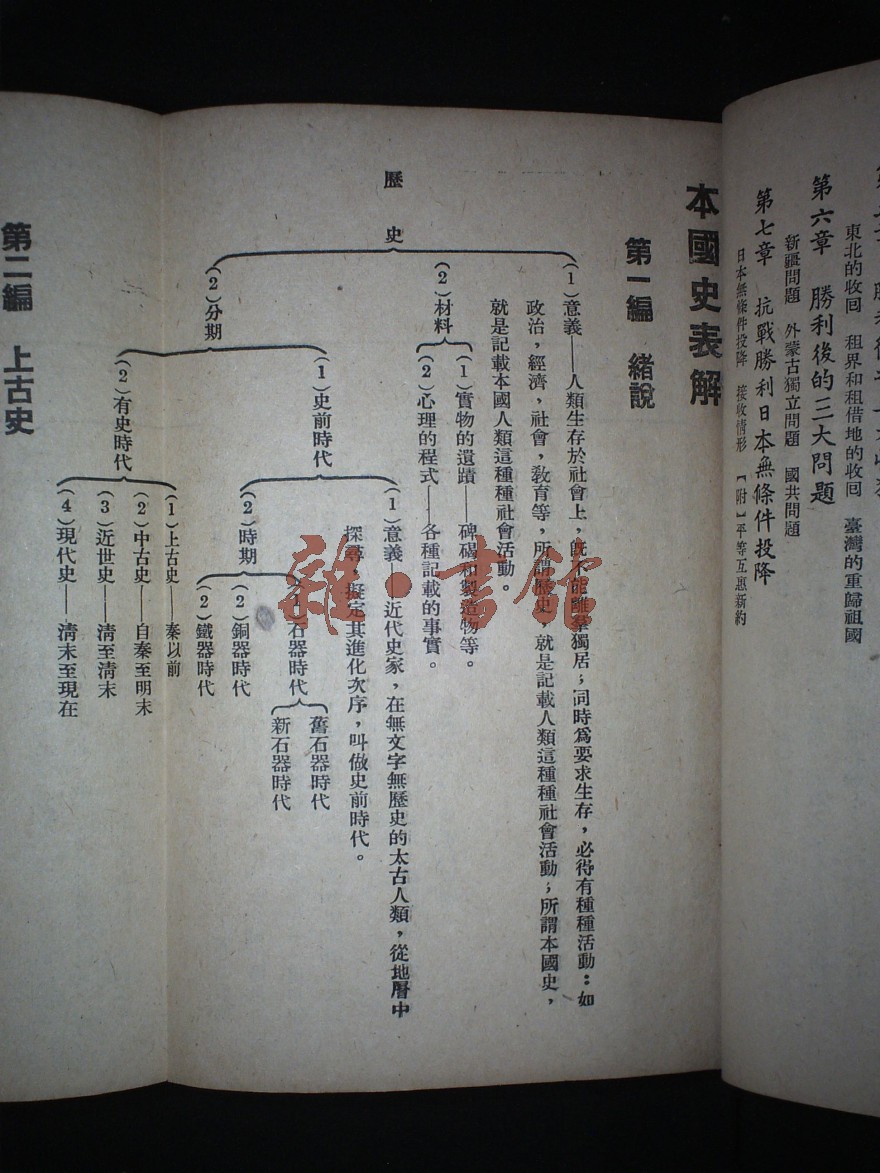 第六章　勝利後的三大問題
東北的收回　租界和租借地的收回　臺灣的重歸祖國
新疆問題　外蒙古獨立問題　國共問題
第七章　抗戰勝利日本無條件投降
日本無條件投降　接收情形　【附】平等互惠新約
本國史表解
第一編　緒說
歷史
(1)意義——人類生存於社會上，既不能離羣獨居；同時為要求生存，必得有種種活動：如
政治，經濟，社會，敎育等，所謂歷史，就是記載人類這種種社會活動；所謂本國史，
就是記載本國人類這種種社會活動。
(2)材料
(1)實物的遺蹟——碑碣和製造物等。
(2)心理的程式——各種記載的事實。
(2)分期
(1)史前時代
(1)意義——近代史家，在無文字無歷史的太古人類，從地層中
探尋，擬定其進化次序，叫做史前時代。
(2)時期
(1)石器時代
舊石器時代
新石器時代
(2)銅器時代
(2)鐵器時代
(2)有史時代
(1)上古史——秦以前
(2)中古史——自秦至明末
(3)近世史——清至清末
(4)現代史——清末至現在
第二編　上古史
書館